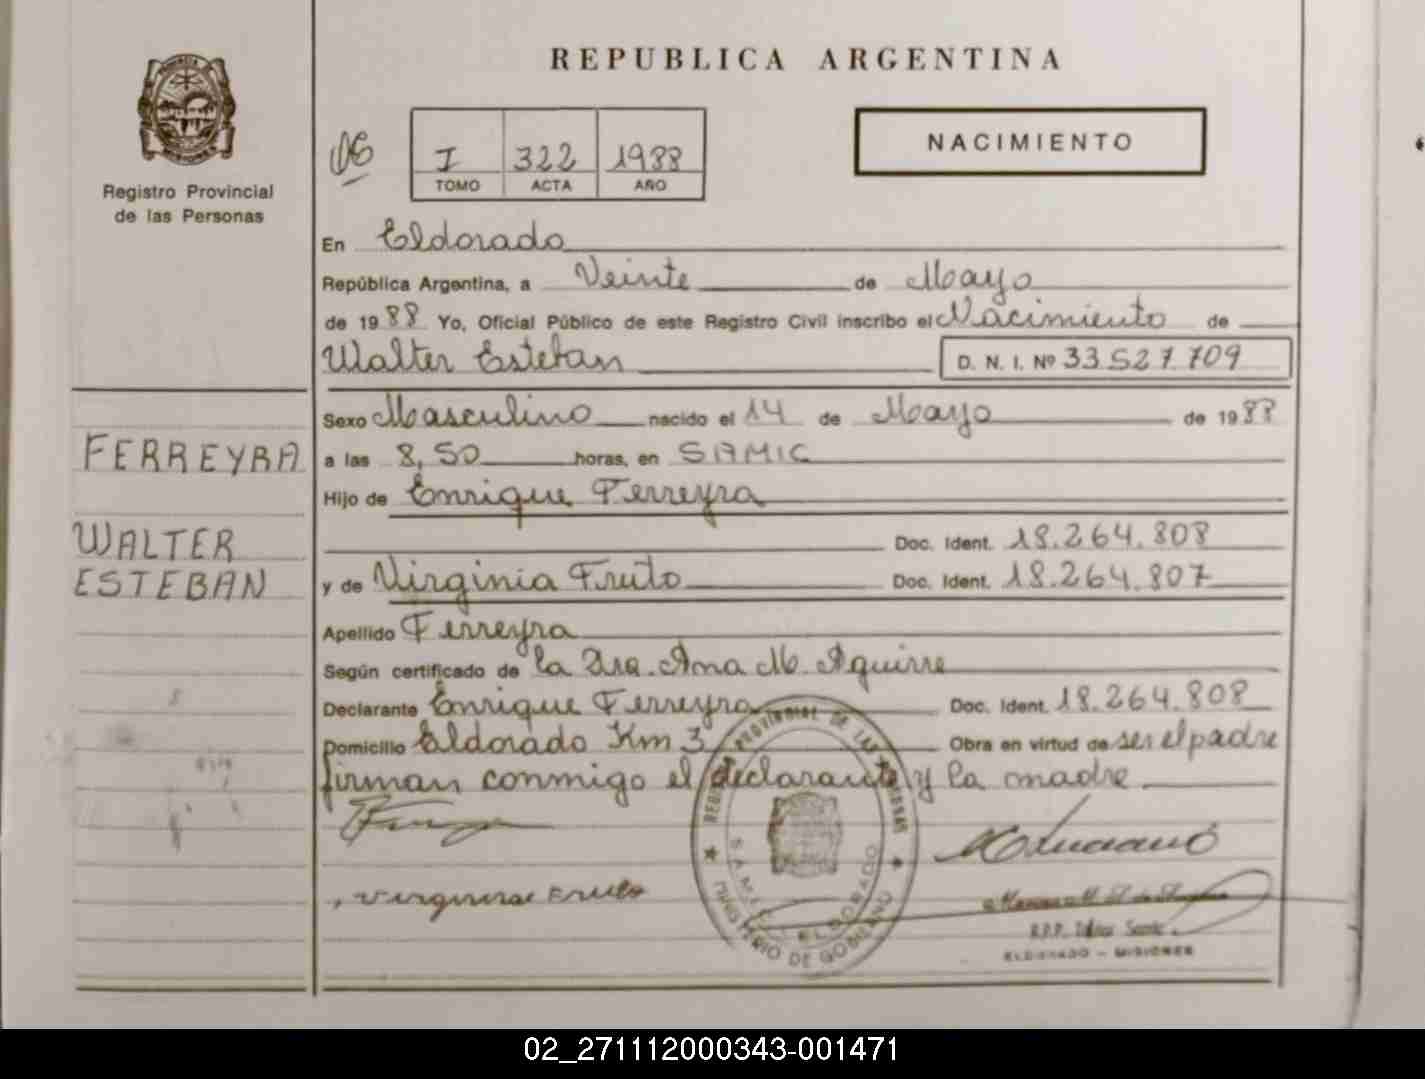 REPUBLICA ARGENTINA
Registro Provincial
de las Personas
I 322 1988
TOMO ACTA AÑO
NACIMIENTO
En Eldorado
República Argentina, a Veinte de Mayo
de 1988 Yo, Oficial Público de este Registro Civil inscribo el Nacimiento de
Walter Esteban D. N. I. Nº 33 527 709
FERREYRA
WALTER
ESTEBAN
Sexo Masculino nacido el 14 de Mayo de 1988
a las 8,50 horas, en SAMIC
Hijo de Enrique Ferreyra
Doc. Ident. 18.264.808
y de Virginia Fruto Doc. Ident. 18.264.807
Apellido Ferreyra
Según certificado de la Dra. Ana M. Aguirre
Declarante Enrique Ferreyra Doc. Ident. 18.264.808
Domicilio Eldorado Km 3 Obra en virtud de ser el padre
firman conmigo el declarante y la madre
REGISTRO PROVINCIAL DE LAS PERSONAS
S.A.M.I.C. ELDORADO
MINISTERIO DE GOBIERNO
Virginia Fruto
ELDORADO - MISIONES
02_271112000343-001471